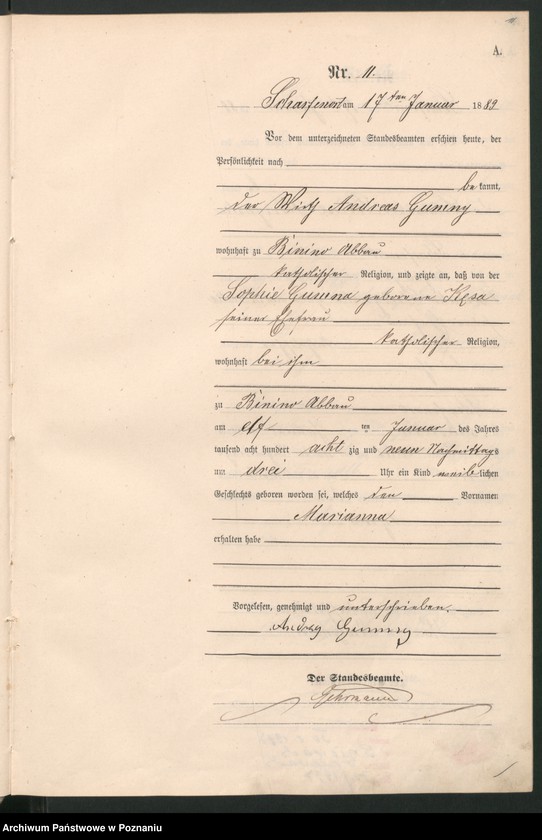 A.
Nr. 11.
Scharfenort am 17ten Januar 1889
Vor dem unterzeichneten Standesbeamten erschien heute, der
Persönlichkeit nach
be kannt,
der Wirth Andreas Gumny
wohnhaft zu Binino Abbau
katholischer Religion, und zeigte an, daß von der
Sophie Gumna geborene
seiner Ehefrau
katholischer Religion,
wohnhaft bei ihm
zu Binino Abbau
am elf ten Januar des Jahres
tausend acht hundert acht zig und neun Nachmittags
um drei Uhr ein Kind weib lichen
Geschlechts geboren worden sei, welches den Vornamen
Marianna
erhalten habe
Vorgelesen, genehmigt und unterschrieben.
Gumny
Der Standesbeamte.
Archiwum Państwowe w Poznaniu